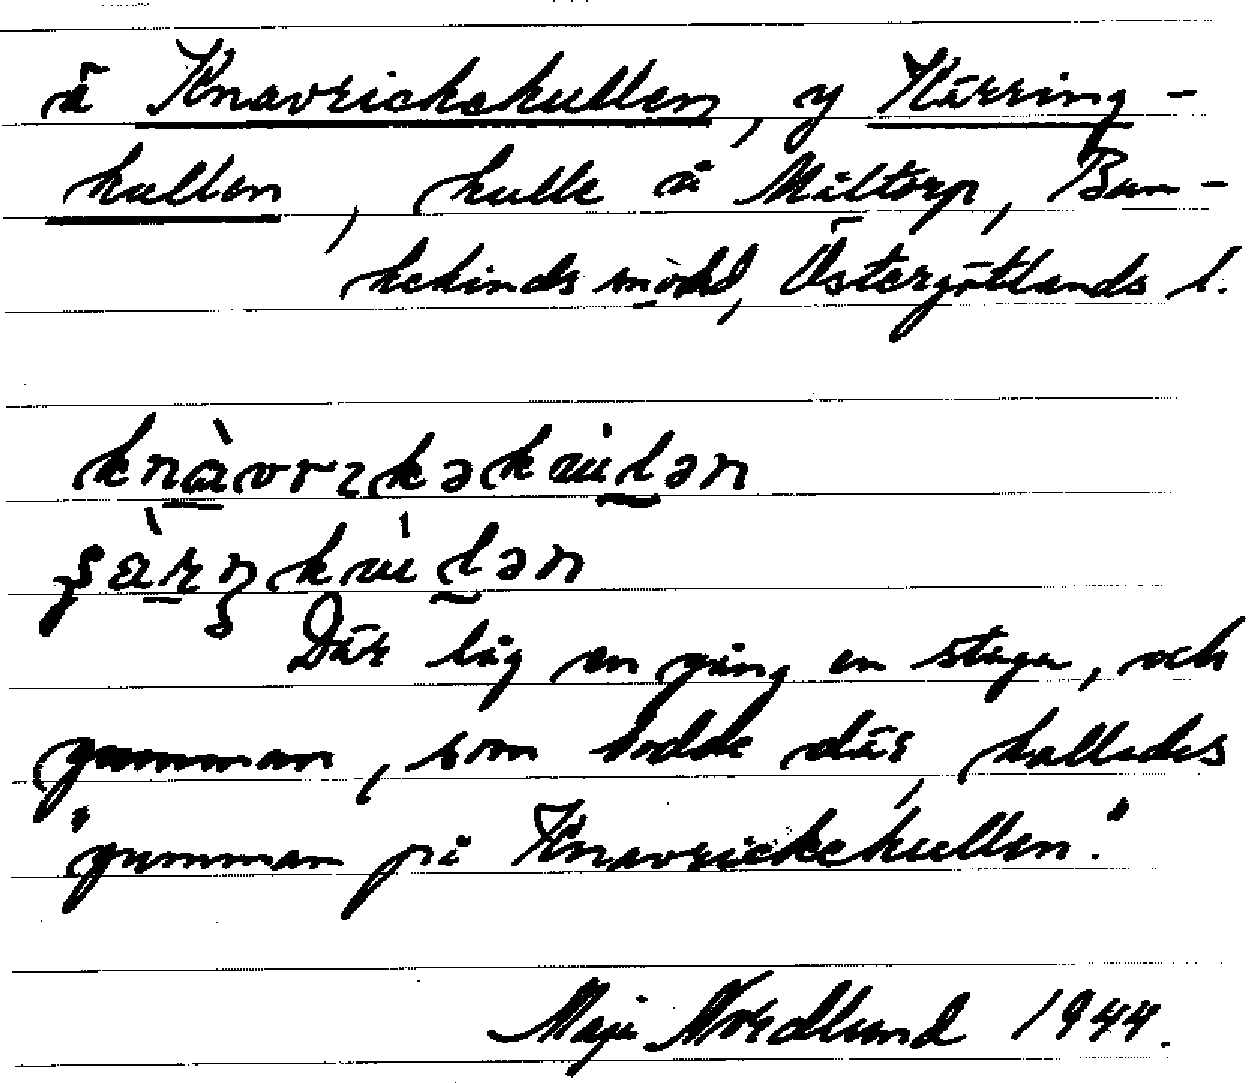 ä Knavrickekullen, y Kärring-
kullen, kulle å Miltorp, Ban-
kekinds sn o hd, Östergötlands l.
knàvrɩkəkúlən
Där låg en gång en stuga, och
gumman, som bodde där, kallades
"gumman på Knavrickekullen."
Maja Nordlund 1944.